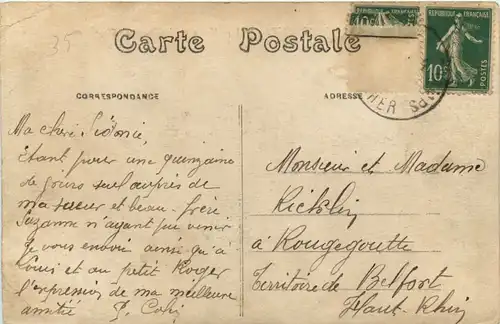 35
Carte Postale
RÉPUBLIQUE FRANÇAISE
10c
POSTES
CORRESPONDANCE
ADRESSE
Ma chère Sidonie,
étant pour une quinzaine
de jours seul auprès de
ma sœur et beau-frère
Suzanne n'ayant pu venir
Je vous envoie ainsi qu'à
Louis et au petit Roger
l'expression de ma meilleure
amitié
Monsieur et Madame
Ricklin
à Rougegoutte
Territoire de Belfort
Haut-Rhin